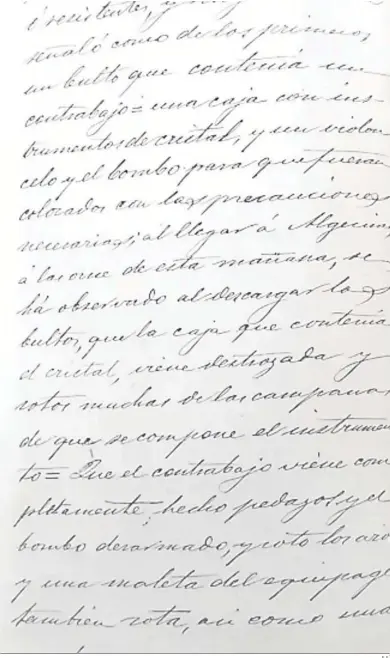 é resistentes, y
señaló como de los primeros,
un bulto que contenía un
contrabajo= una caja con ins-
trumentos de cristal, y un violon
celo y el bombo para que fueran
colocados con las precauciones
necesarias; al llegar á Algeciras
á las once de esta mañana, se
há observado al descargar los
bultos, que la caja que contenía
el cristal, viene destrozada y
rotos muchas de las campanas
de que se compone el instrumen
to= Que el contrabajo viene com
pletamente hecho pedazos, y el
bombo desarmado, y roto los aro
y una maleta del equipage
también rota, asi como una